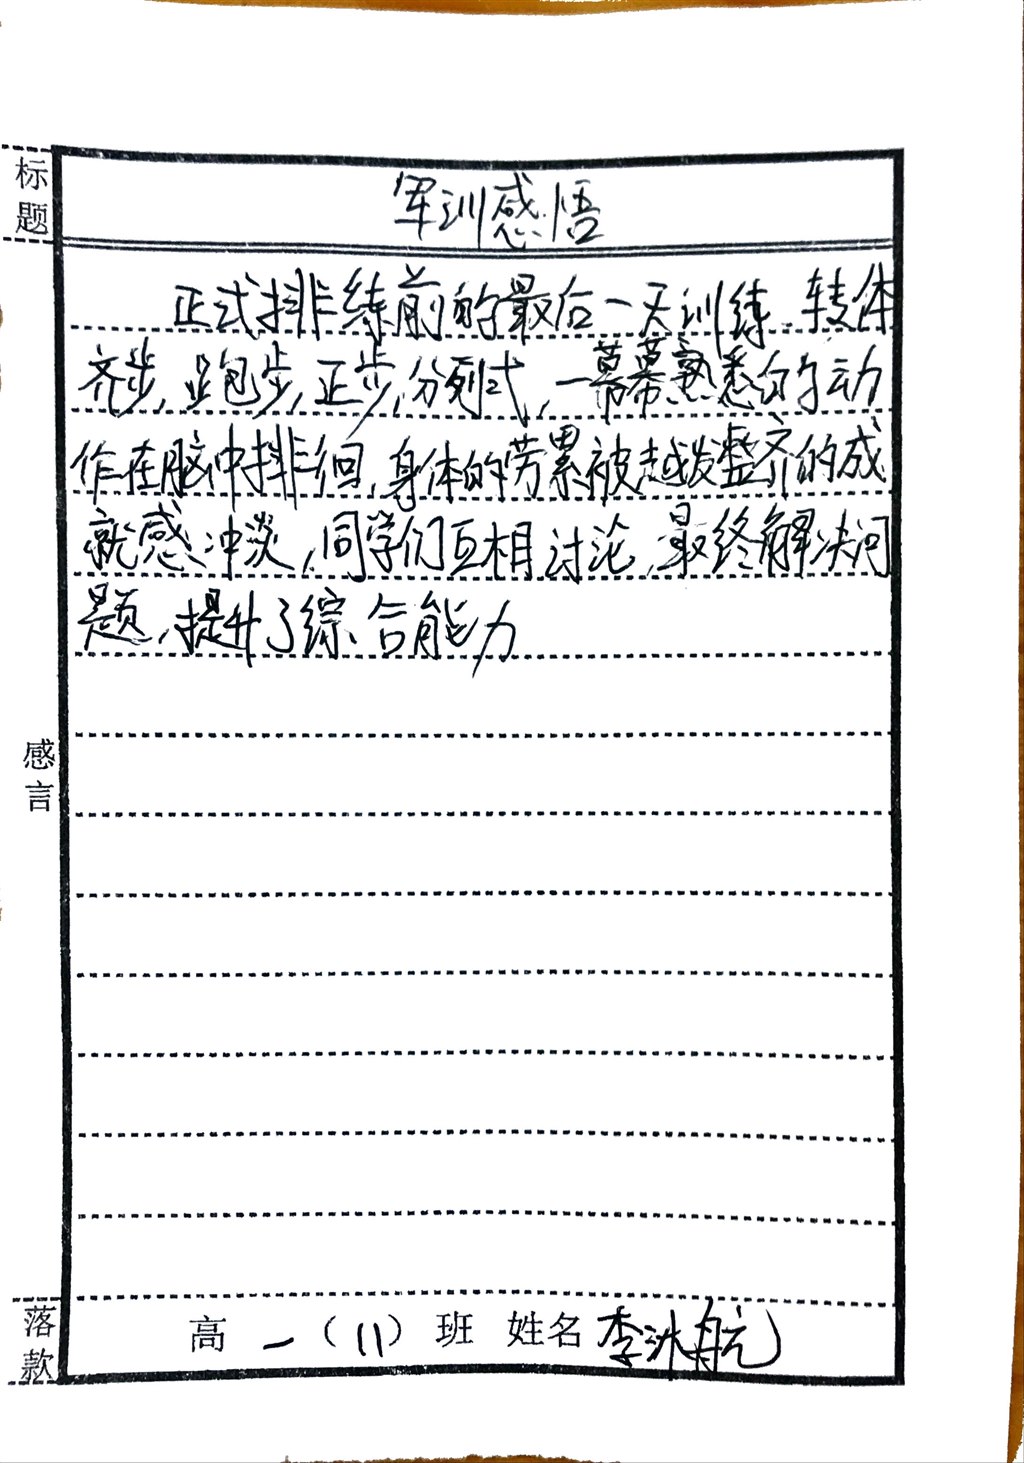 标题
军训感悟
正式排练前的最后一天训练，转体
齐步，跑步，正步，分列式，一幕幕熟悉的动
作在脑中排徊，身体的劳累被越发整齐的成
就感冲淡，同学们互相讨论，最终解决问
题，提升了综合能力
感言
落款
高一（11）班 姓名 李沐航